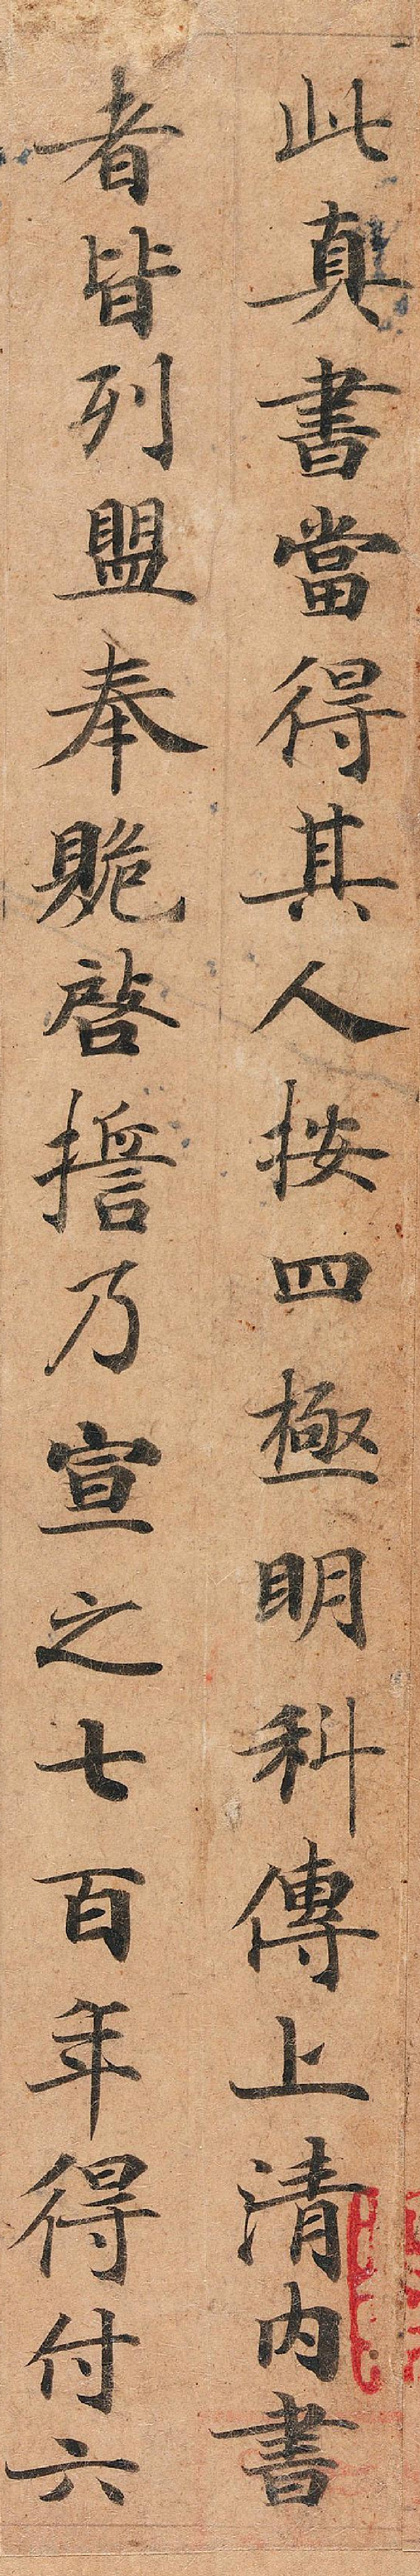 此真書當得其人按四極明科傳上清内書
者皆列盟奉贶啓擔乃宣之七百年得付六